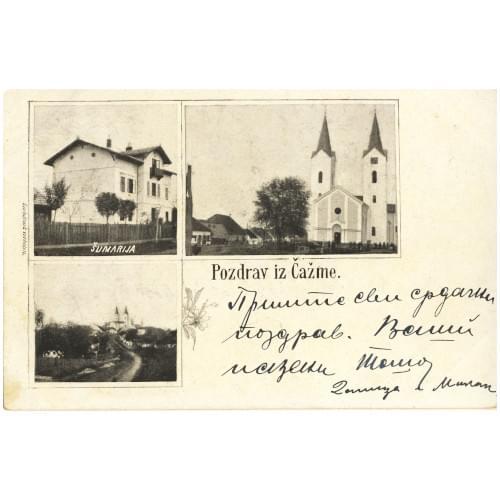 ŠUMARIJA
Pozdrav iz Čažme.
Примите сви срдачни
поздрав. Ваший
Тошо
и Милан